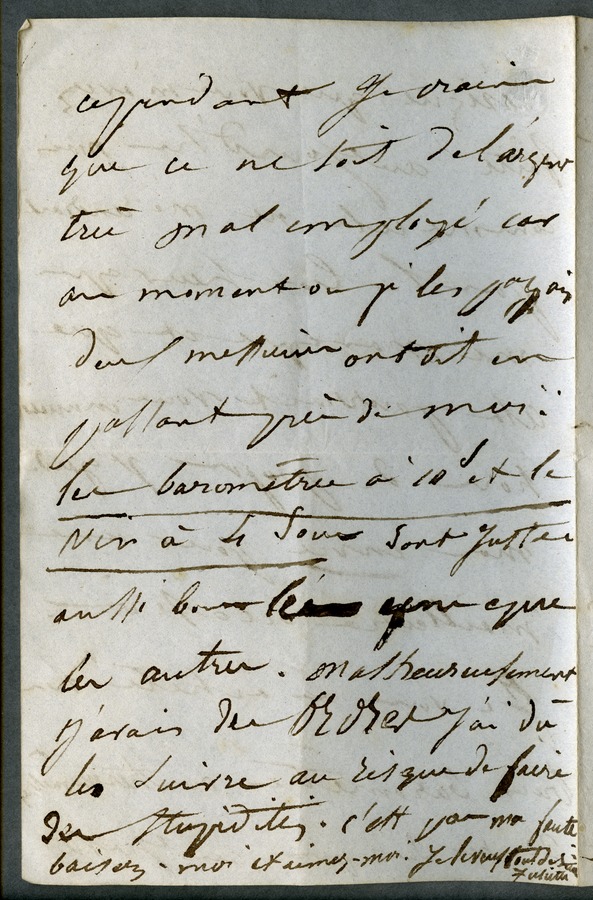 cependant Je crains
que ce ne soit de l'argent
très mal employé car
au moment où je les payais
deux messieurs ont dit en
passant près de moi :
les baromètres à 10s et le
Vin à 4 Sous sont justes
aussi bons les uns que
les autres. Malheureusement
j'avais des ordres j'ai dû
les suivre au risque de faire
des stupidités. c'est pas ma faute
baisez-moi et aimez-moi. Je le veux tout de suite
Juliette